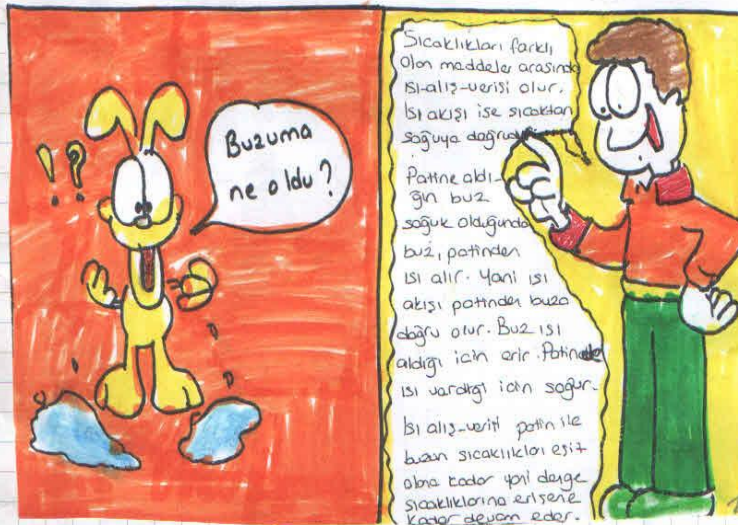 !?
Buzuma
ne oldu?
Sıcaklıkları farklı
olan maddeler arasında
ısı-alış-verişi olur.
Isı akışı ise sıcaktan
soğuya doğrudur.
Patine aldı-
ğın buz
soğuk olduğunda
buz, patinden
ısı alır. Yani ısı
akışı patinden buza
doğru olur. Buz ısı
aldığı için erir. Patinde
ısı vardığı için soğur.
Isı alış-verişi patin ile
buzun sıcaklıkları eşit
olana kadar yani denge
sıcaklıklarına erişene
kadar devam eder.